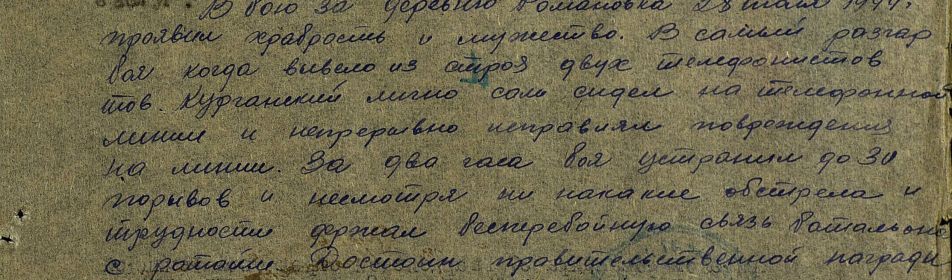 В бою за деревню Романовка 28 мая 1944г.
проявил храбрость и мужество. В самый разгар
боя когда вывело из строя двух телефонистов
тов. Курганский лично сам сидел на телефонной
линии и непрерывно исправлял повреждения
на линии. За два часа боя устранил до 30
порывов и несмотря ни накакие обстрела и
трудности держал бесперебойную связь батальона
с ротами Достоин правительственной награды